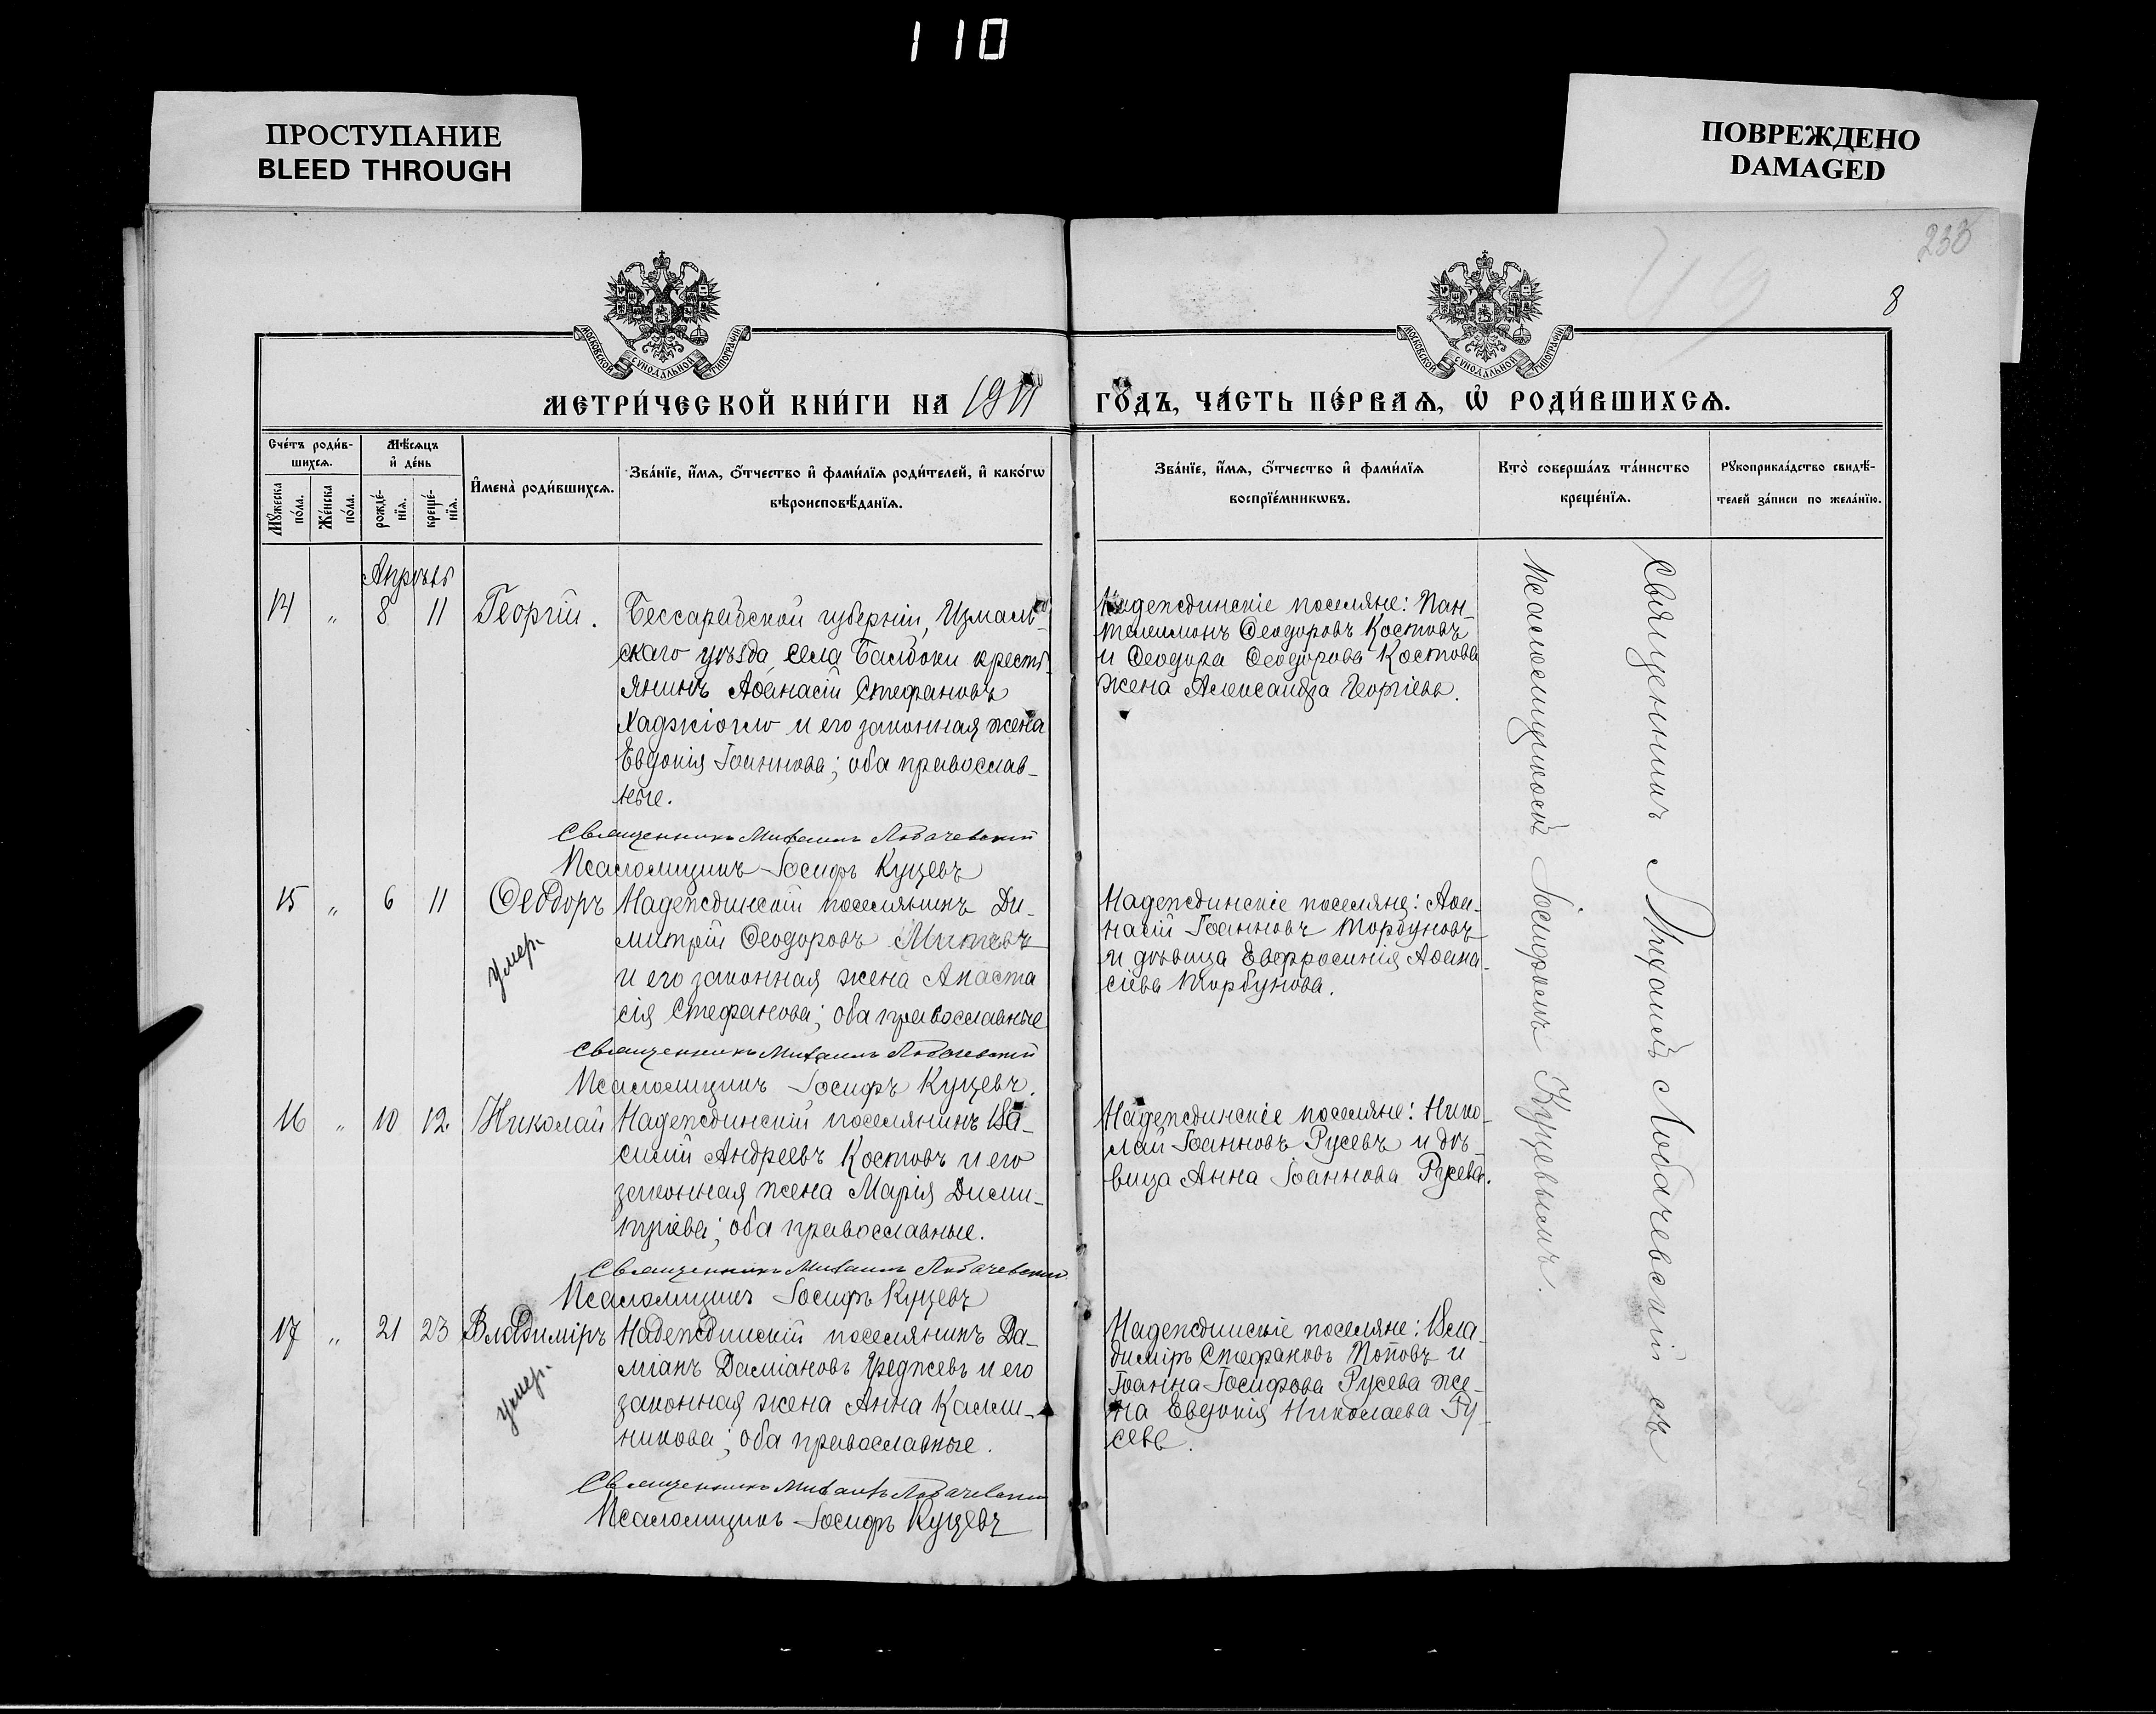 110
ПРОСТУПАНИЕ
BLEED THROUGH
ПОВРЕЖДЕНО
DAMAGED
233
8
49
МОСКОВСКОЙ СѴНОДАЛЬНОЙ ТИПОГРАФІИ
МОСКОВСКОЙ СѴНОДАЛЬНОЙ ТИПОГРАФІИ
МЕТРИ́ЧЕСКОЙ КНИ́ГИ НА 1911
ГО́ДЪ, ЧА́СТЬ ПЕ́РВАѦ, Ѡ҆ РОДИ́ВШИХСѦ.
Сче́тъ роди́в-
шихсѧ.
Мѣ́сѧцъ
и҆ де́нь
Мꙋ́жеска
по́ла.
Же́нска
по́ла.
рожде́-
нїѧ.
креще́-
нїѧ.
И҆мена̀ роди́вшихсѧ.
Зва́нїе, и҆́мѧ, ѻ҆́тчество и҆ фами́лїѧ роди́телей, и҆ како́гѡ
вѣроисповѣ́данїѧ.
Зва́нїе, и҆́мѧ, ѻ҆́тчество и҆ фами́лїѧ
воспрїе́мникѡвъ.
Кто̀ соверша́лъ та́инство
креще́нїѧ.
Рꙋкоприкла́дство свидѣ́-
телей за́писи по жела́нїю.
Апрѣль
14 " 8 11 Георгій.
Бессарабской губерніи, Измаиль-
скаго уѣзда, села Балбоки кресть-
янинъ Аѳанасій Стефановъ
Хаджіогло и его законная жена
Евдокія Іоаннова; оба православ-
ные.
Священникъ Михаилъ Лобачевскій
Псаломщикъ Іосифъ Куцевъ
Надеждинскіе поселяне: Пан-
телимонъ Ѳеодоровъ Костовъ
и Ѳеодора Ѳеодорова Костова
жена Александра Георгіева.
15 " 6 11 Ѳеодоръ
умер.
Надеждинскій поселянинъ Ди-
митрій Ѳеодоровъ Митевъ
и его законная жена Анаста
сія Стефанова; оба православные
Священникъ Михаилъ Лобачевскій
Псаломщикъ Іосифъ Куцевъ.
Надеждинскіе поселяне: Аѳа-
насій Іоанновъ Торбуновъ
и дѣвица Евфросинія Аѳана-
сіева Торбунова.
16 " 10 12. Николай
Надеждинскій поселянинъ Ва-
силій Андреевъ Костовъ и его
законная жена Марія Дими-
тріева; оба православные.
Священникъ Михаилъ Лобачевскій
Псаломщикъ Іосифъ Куцевъ
Надеждинскіе поселяне: Нико-
лай Іоанновъ Русевъ и дѣ-
вица Анна Іоаннова Русева.
17 " 21 23 Владиміръ
умер.
Надеждинскій поселянинъ Да-
міанъ Даміановъ и его
законная жена Анна Калли-
никова; оба православные.
Священникъ Михаилъ Лобачевскій
Псаломщикъ Іосифъ Куцевъ
Надеждинскіе поселяне: Вла-
диміръ Стефановъ Поповъ и
Іоанна Іосифова Русева же-
на Евдокія Николаева Ру-
сева.
Священникъ Михаилъ Лобачевскій съ
псаломщикомъ Іосифомъ Куцевымъ.